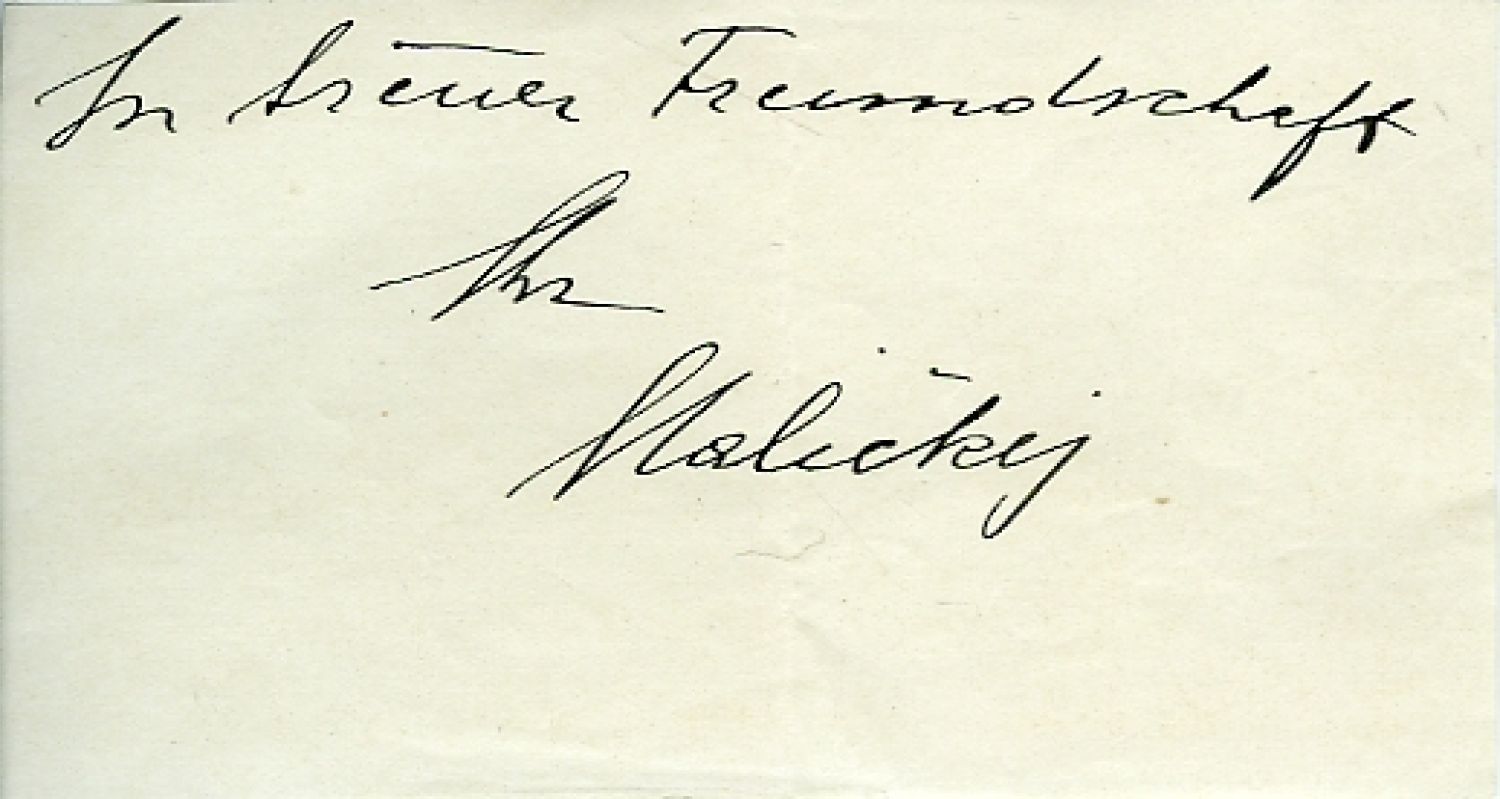 In treuer Freundschaft
Ihr